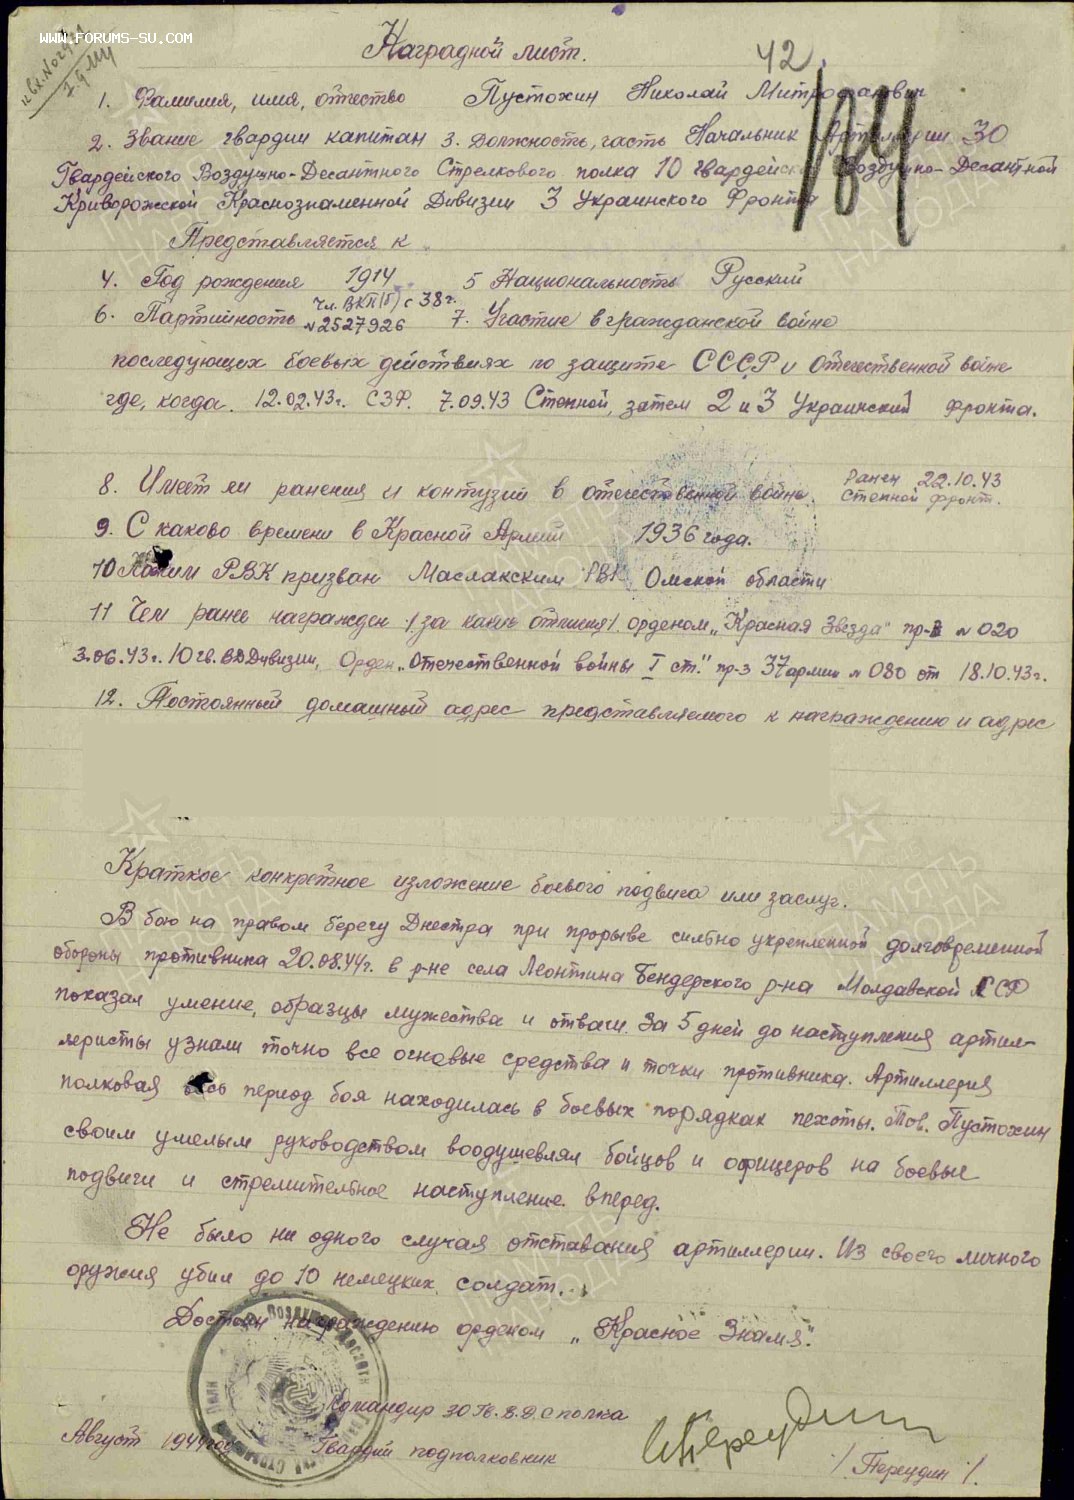 WWW.FORUMS-SU.COM
Наградной лист.
42
1. Фамилия, имя, отчество Пустохин Николай Митрофанович
2. Звание гвардии капитан 3. Должность, часть Начальник Артиллерии 30
Гвардейского Воздушно-Десантного Стрелкового полка 10 гвардейской Воздушно-Десантной
Криворожской Краснознаменной Дивизии 3 Украинского Фронта
Представляется к
4. Год рождения 1914 5 Национальность Русский
6. Партийность Чл. ВКП(б) с 38 г. №2527926 7. Участие в гражданской войне
последующих боевых действиях по защите СССР и отечественной войне
где, когда. 12.02.43г. СЗФ. 7.09.43 Степной, затем 2 и 3 Украинский фронта.
8. Имеет ли ранения и контузии в отечественной войне. Ранен 22.10.43
Степной фронт.
9. С каково времени в Красной Армии 1936 года.
10 Каким РВК призван Маслакским РВК Омской области
11 Чем ранее награжден /за какие отличия/. орденом „Красная Звезда" пр-з №020
3.06.43г. 10 гв. ВДДивизии, Орден „Отечественной войны I ст." пр-з 37 армии №080 от 18.10.43г.
12. Постоянный домашный адрес представляемого к награждению и адрес
Краткое конкретное изложение боевого подвига или заслуг.
В бою на правом берегу Днестра при прорыве сильно укрепленной долговременной
обороны противника 20.08.44г. в р-не села Леонтина Бендерского р-на Молдавской ССР
показал умение, образцы мужества и отваги. За 5 дней до наступления артил-
леристы узнали точно все огневые средства и точки противника. Артиллерия
полковая весь период боя находилась в боевых порядках пехоты. Тов. Пустохин
своим умелым руководством воодушевлял бойцов и офицеров на боевые
подвиги и стремительное наступление вперед.
Не было ни одного случая отставания артиллерии. Из своего личного
оружия убил до 10 немецких солдат.
Достоин награждению орденом „Красное Знамя".
Командир 30 Гв. В.Д.С полка
Август 1944 год Гвардии подполковник /Переудин/.